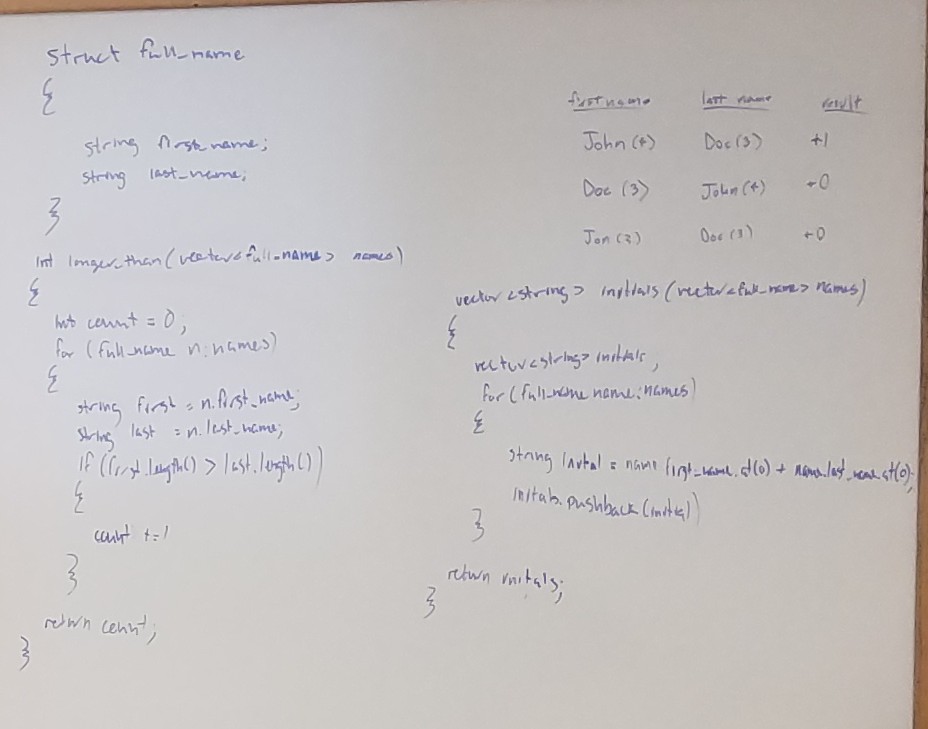 struct full_name
{
string first_name;
string last_name;
}
int longer_than(vector<full_name> names)
{
int count = 0;
for (full_name n:names)
{
string first = n.first_name;
string last = n.last_name;
if (first.length() > last.length())
{
count +=1
}
}
return count;
}
first name last name result
John (4) Doe (3) +1
Doe (3) John (4) +0
Jon (3) Doe (3) +0
vector<string> initials (vector<full_name> names)
{
vector<string> initials;
for (full_name name:names)
{
string initial = name.first_name.at(0) + name.last_name.at(0);
initials.pushback(initial)
}
return initials;
}